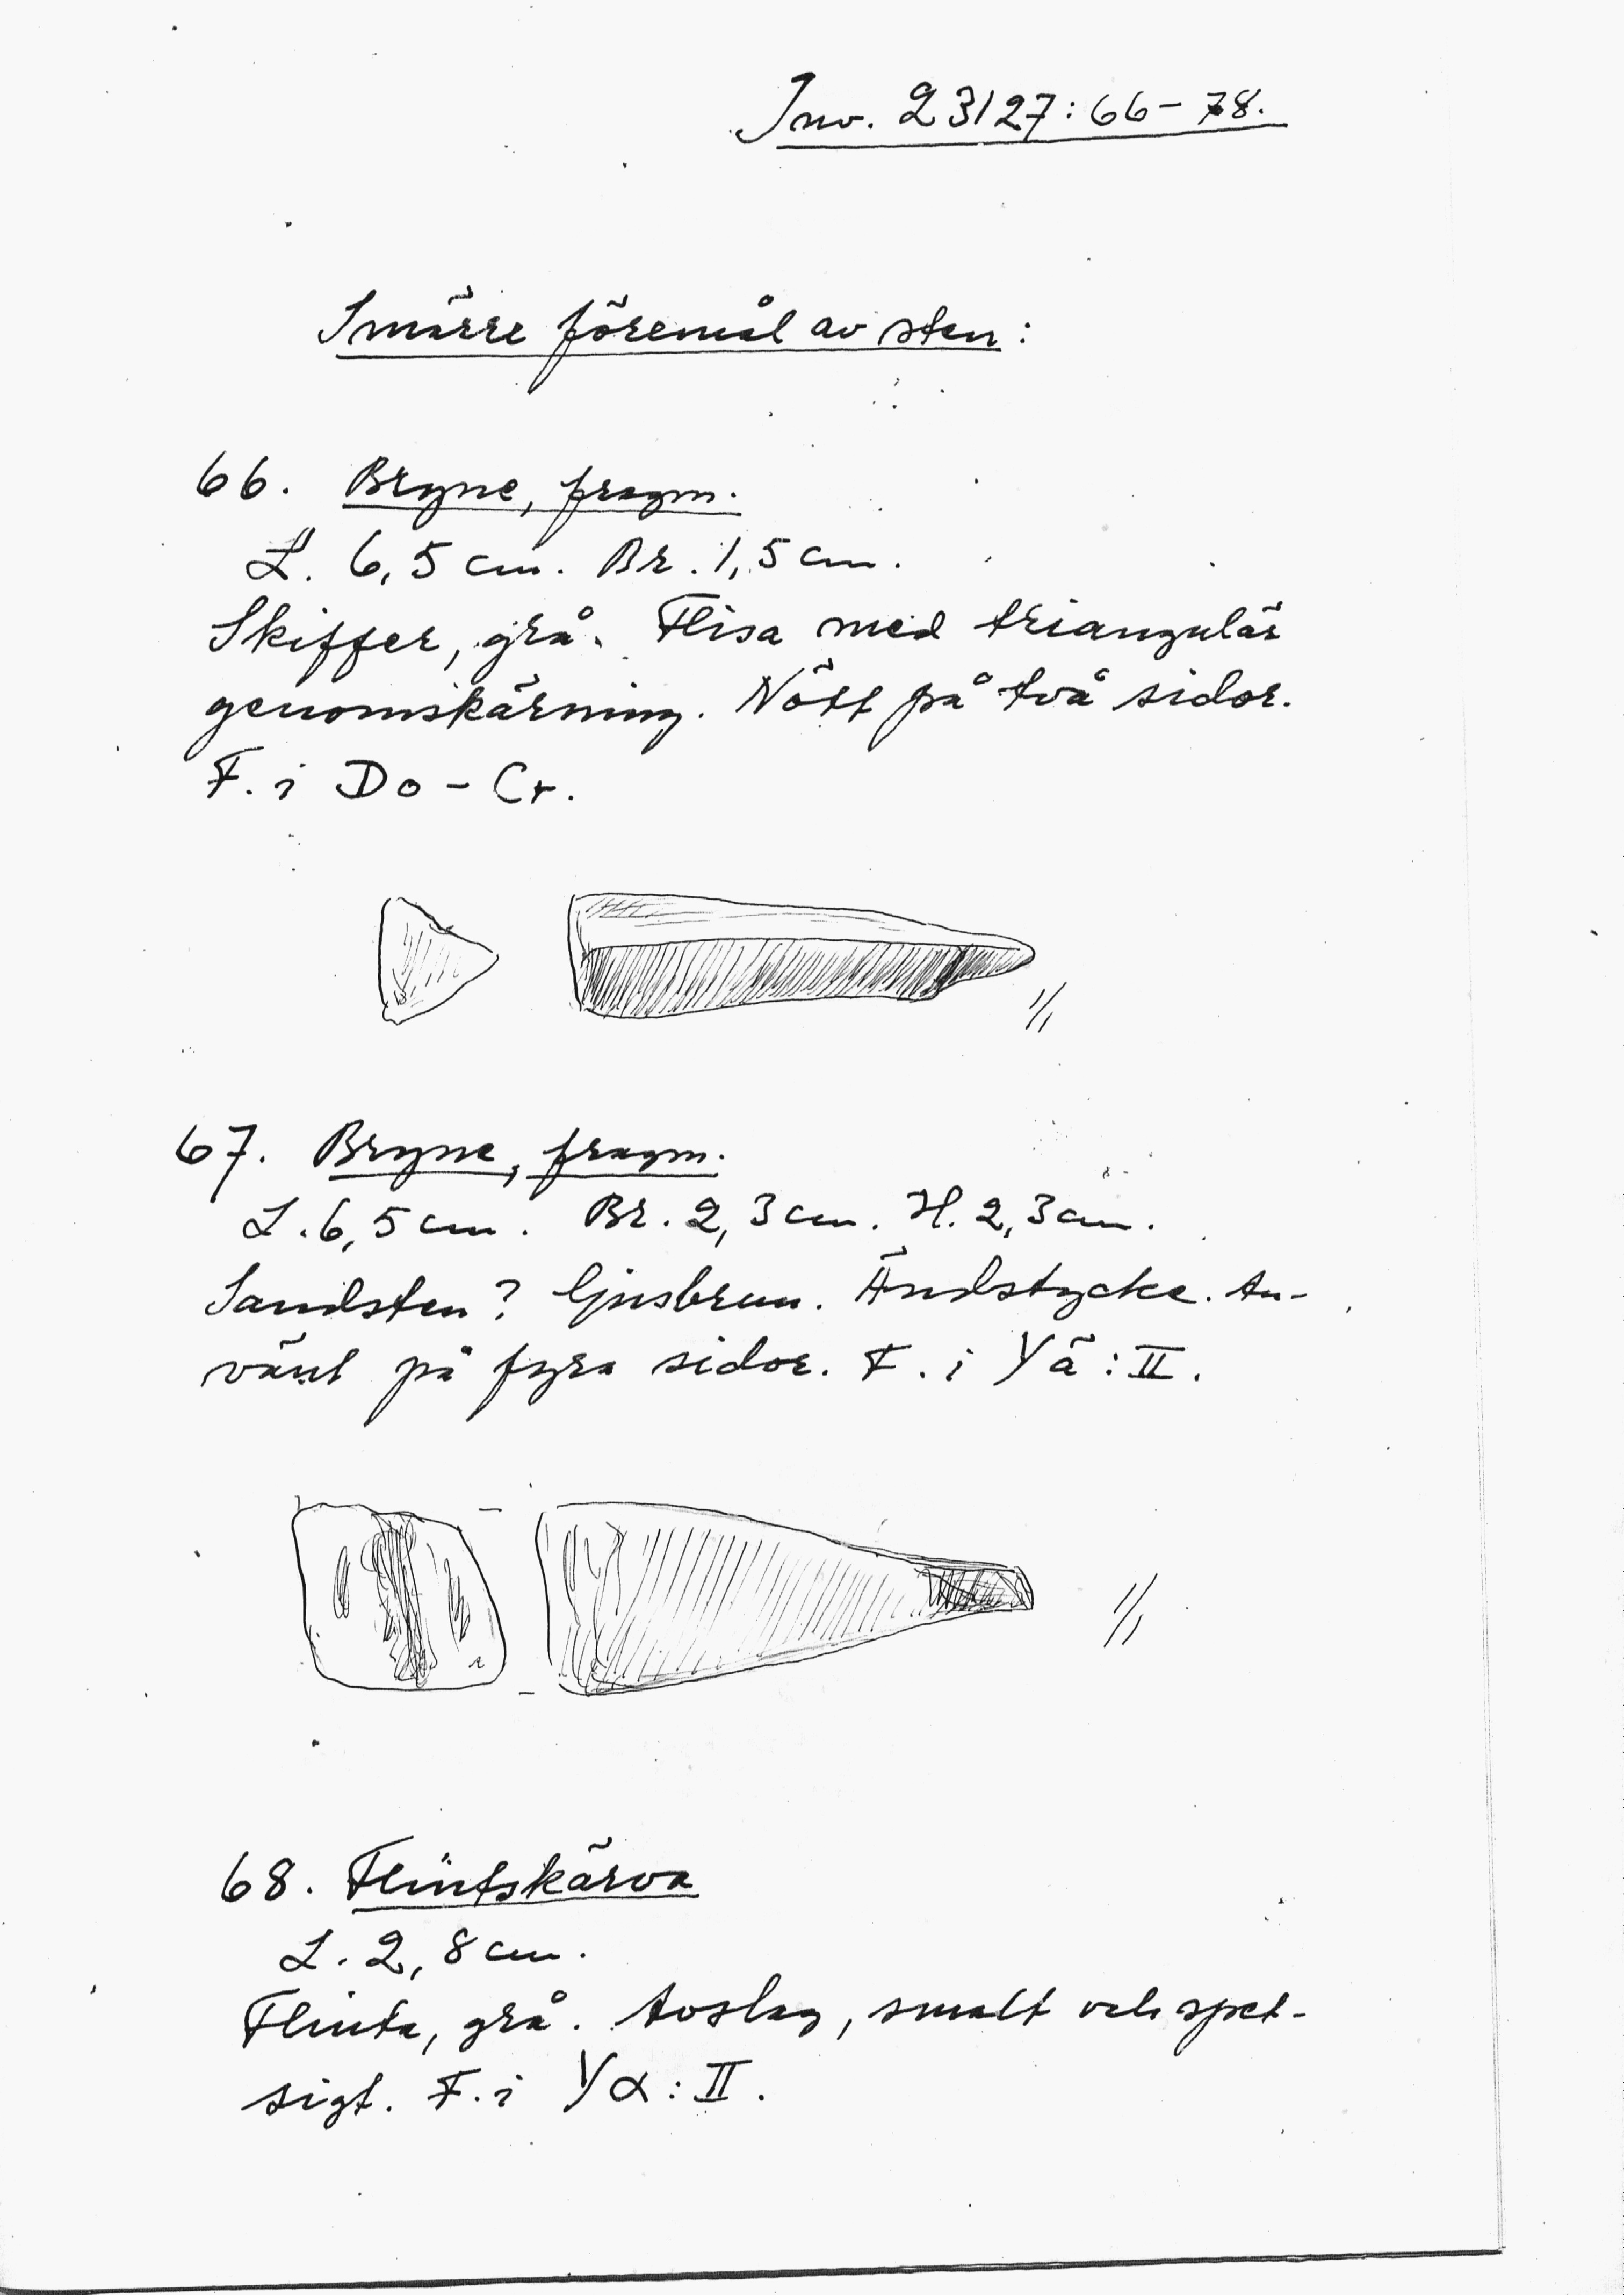 Inv. 23127:66-78.
Smärre föremål av sten:
66. Bryne, fragm.
L. 6,5 cm. Br. 1,5 cm.
Skiffer, grå. Flisa med triangulär
genomskärning. Nött på två sidor.
F. i Do - Cr.
1/1
67. Bryne, fragm.
L. 6,5 cm. Br. 2,3 cm. H. 2,3 cm.
Sandsten? Ljusbrun. Ändstycke. An-
vänt på fyra sidor. F. i Yä:II.
1/1
68. Flintskärva
L. 2,8 cm.
Flinta, grå. Avslag, smalt och spet-
sigt. F. i Yα:II.